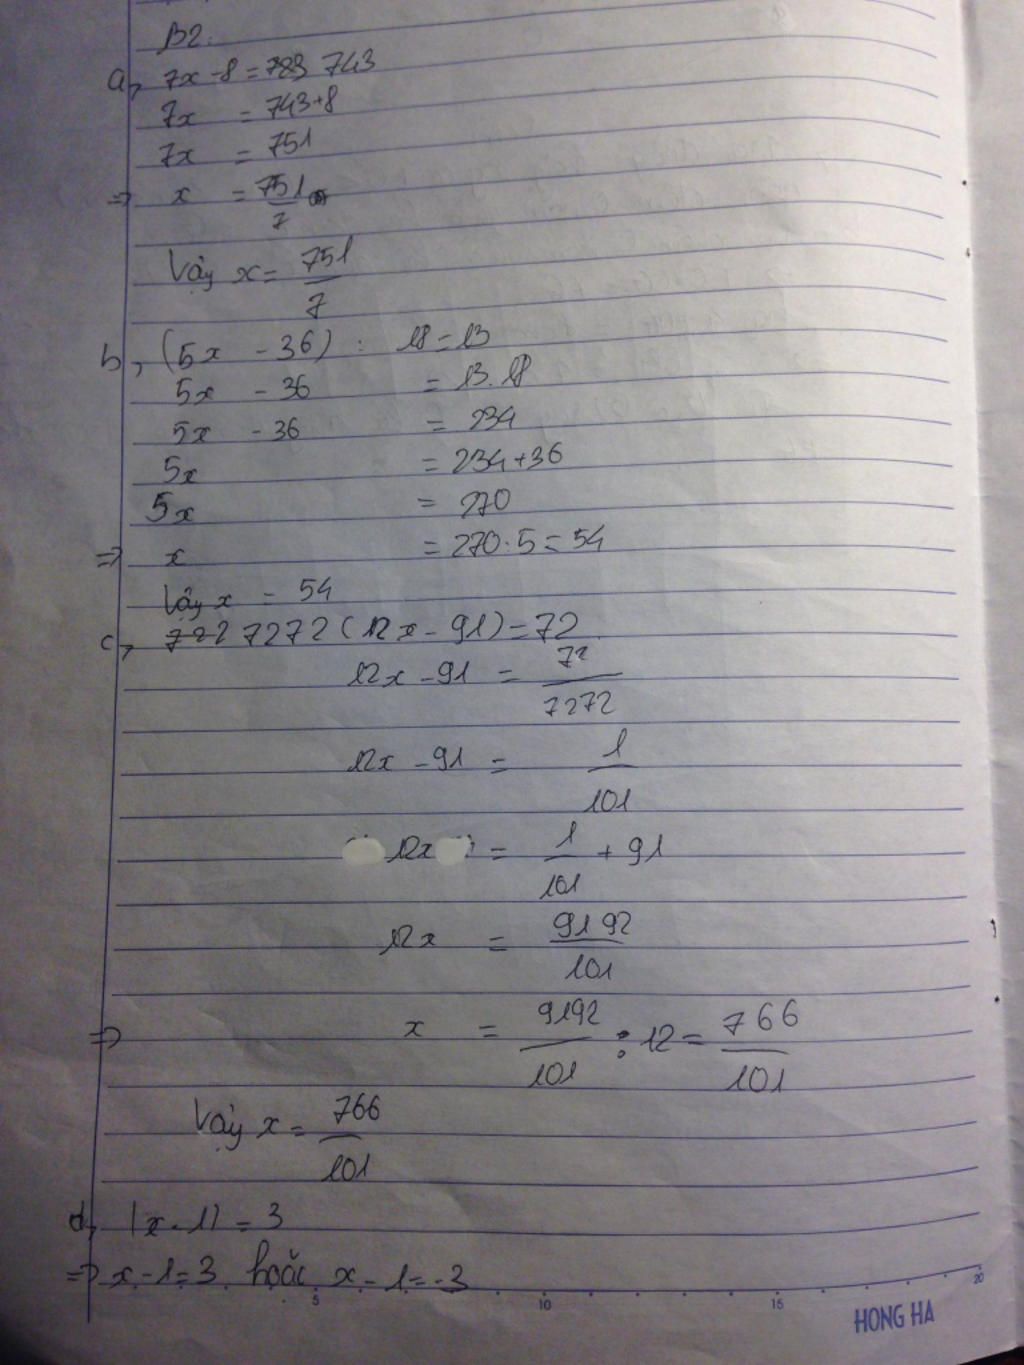 B2.
a, 7x - 8 = 783 743
7x = 743+8
7x = 751
=> x = 751/7
Vậy x = 751/7
b, (5x - 36) : 18 = 13
5x - 36 = 13.18
5x - 36 = 234
5x = 234+36
5x = 270
=> x = 270.5 = 54
Vậy x = 54
c, 722 7272 (12x - 91) = 72
12x - 91 = 72/7272
12x - 91 = 1/101
12x = 1/101 + 91
12x = 9192/101
=> x = 9192/101 : 12 = 766/101
Vậy x = 766/101
d, |x - 1| = 3
=> x - 1 = 3 hoặc x - 1 = -3
5 10 15 20
HONG HA